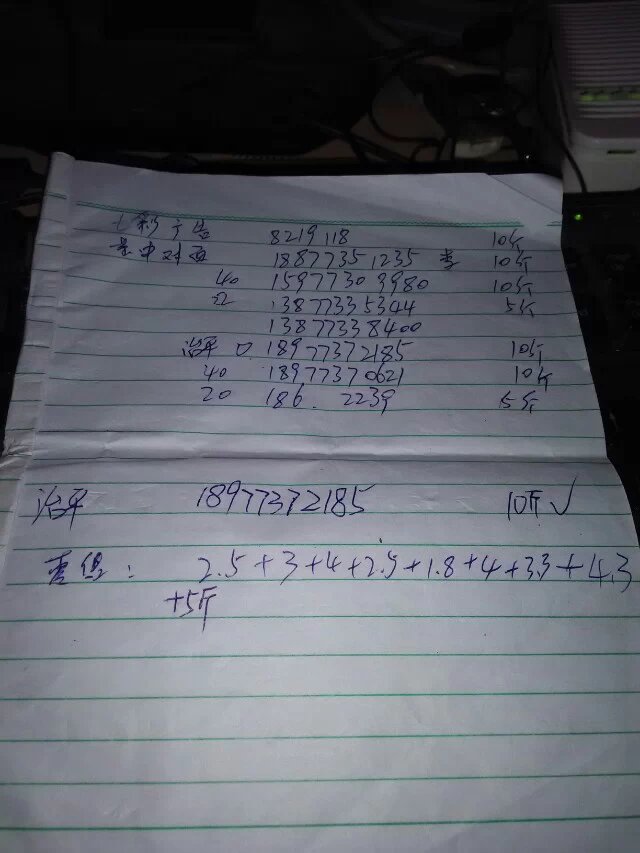 七彩广告 8219118 10斤
18877351235 李 10斤
40 15977309980 10斤
13877335344 5斤
13877338400
治平 口 18977372185 10斤
40 18977370621 10斤
20 186. 2239 5斤
治平 18977372185 10斤√
2.5+3+4+2.5+1.8+4+3.3+4.3
+5斤